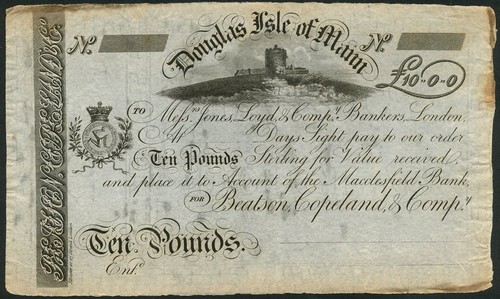 Douglas Isle of Mann
No. No.
£10-0-0
To Messrs. Jones, Loyd, & Compy. Bankers, London,
At Days Sight pay to our order
Ten Pounds Sterling for Value received
and place it to Account of the Macclesfield Bank,
FOR Beatson, Copeland, & Compy.
Ten Pounds.
Entd.